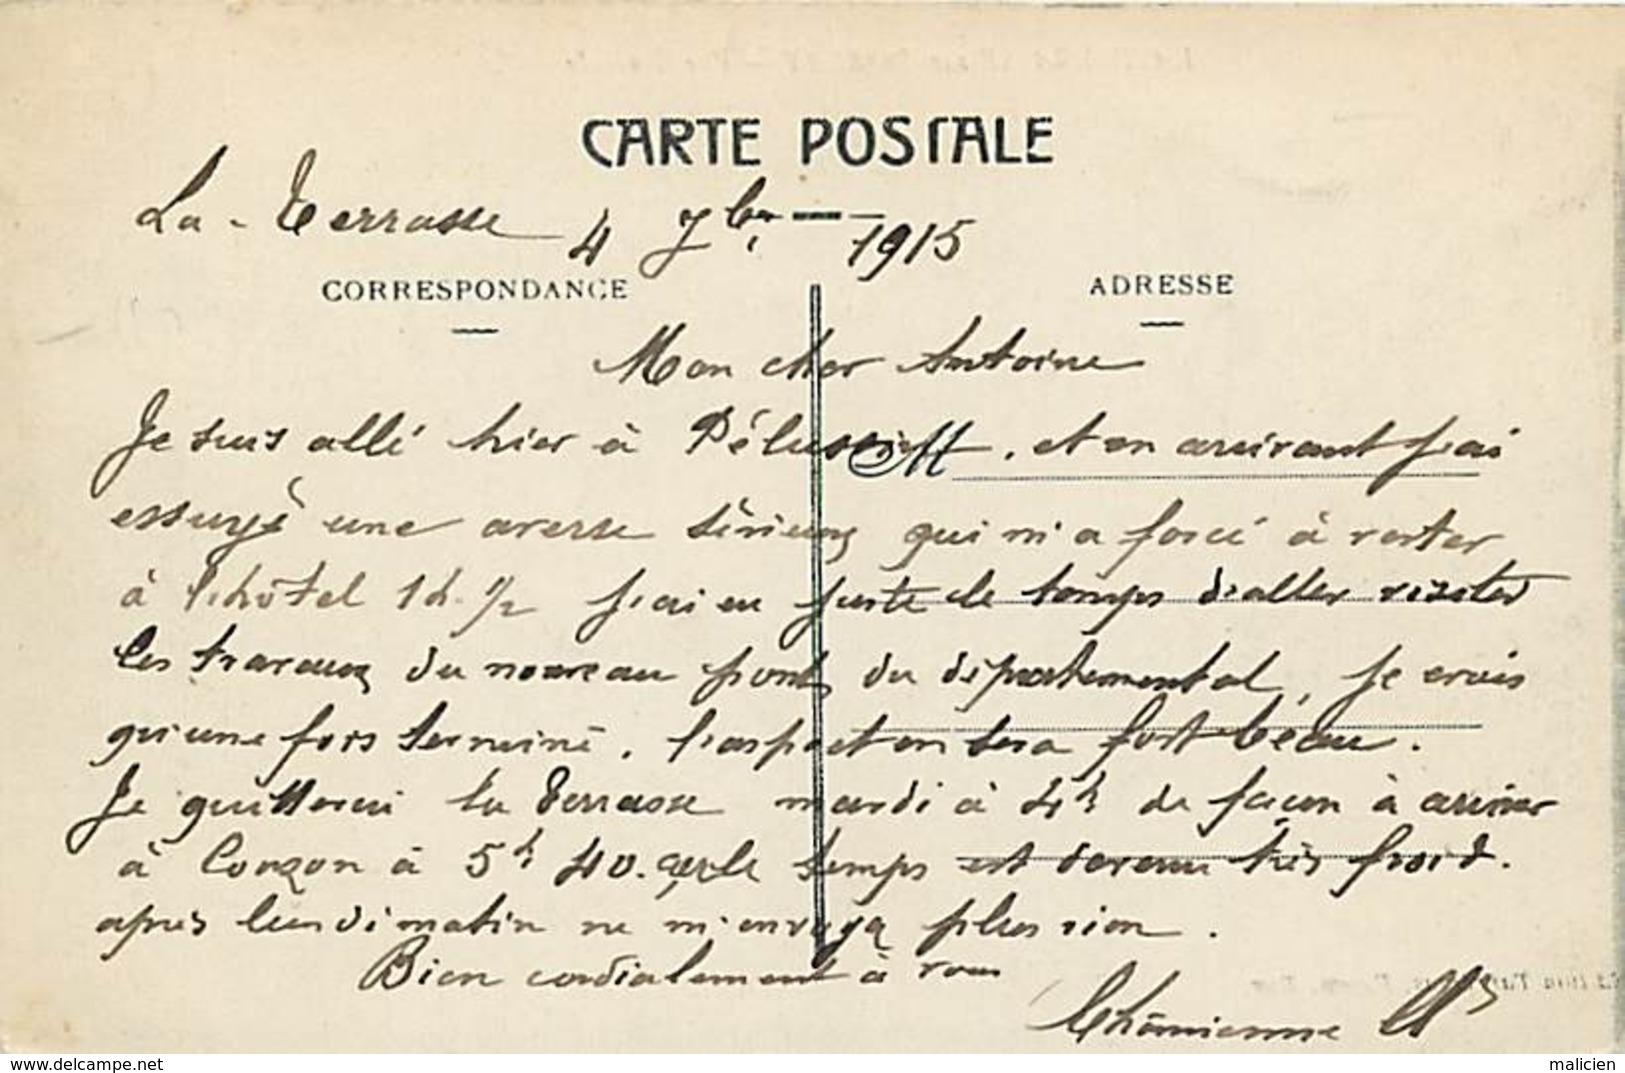 CARTE POSTALE
La - Terrasse 4 7bre 1915
CORRESPONDANCE
ADRESSE
Mon cher Antoine
Je suis allé hier à Pélussin. et en arrivant j'ai
essuyé une averse sérieuse qui m'a forcé à rester
à l'hôtel 1h. 1/2 j'ai eu juste le temps d'aller visiter
les travaux du nouveau pont du départemental, je crois
qu'une fois terminé. l'aspect en sera fort béau.
Je quitterai la Terrasse mardi à 4h de façon à arriver
à Couzon à 5h 40. car le temps est devenu très froid.
après lundi matin ne m'envoya plus rien.
Bien cordialement à vous
delcampe.net
malicien